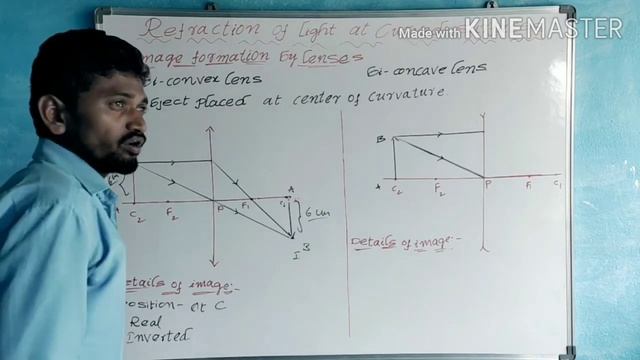 Made with KINEMASTER
Refraction of light at Curved
Image formation by lenses
Bi-convex lens
Bi-concave lens
object placed at center of curvature
A
C2
F2
P
F1
C1
6 cm
B
I
Details of image:-
position - at C
Real
Inverted
B
A
C2
F2
P
F1
C1
Details of image:-